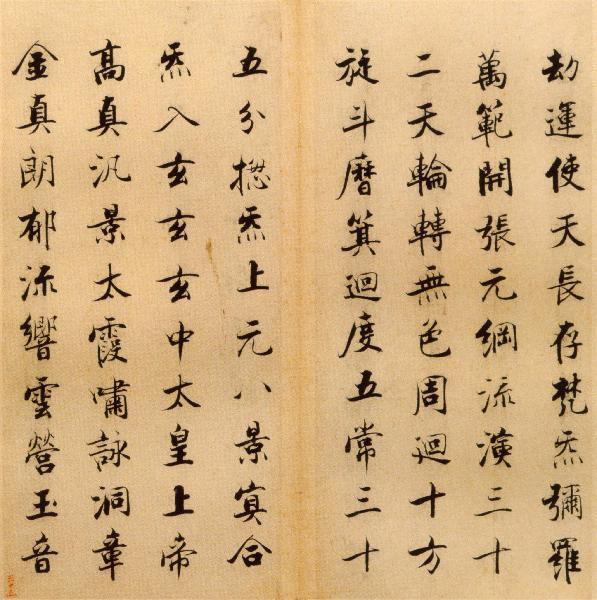 劫運使天長存梵炁彌羅
萬範開張元綱流演三十
二天輪轉無色周迴十方
旋斗曆箕迴度五常三十
五分摠炁上元八景冥合
炁入玄玄玄中太皇上帝
高真汎景太霞嘯詠洞章
金真朗郁流響雲營玉音